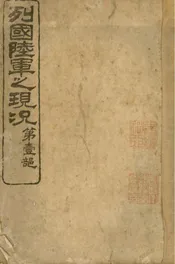 列國陸軍之現況
第壹編